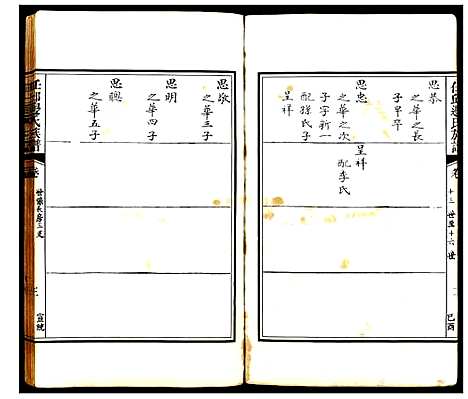 思恭
之華之長
子早卒
思忠
之華之次
子字新一
配孫氏子
呈祥
呈祥
配李氏
卷
十三世至十六世
己酉
思敬
之華三子
思明
之華四子
思聰
之華五子
任邱邊氏族譜
卷
世系長房三支
宣統